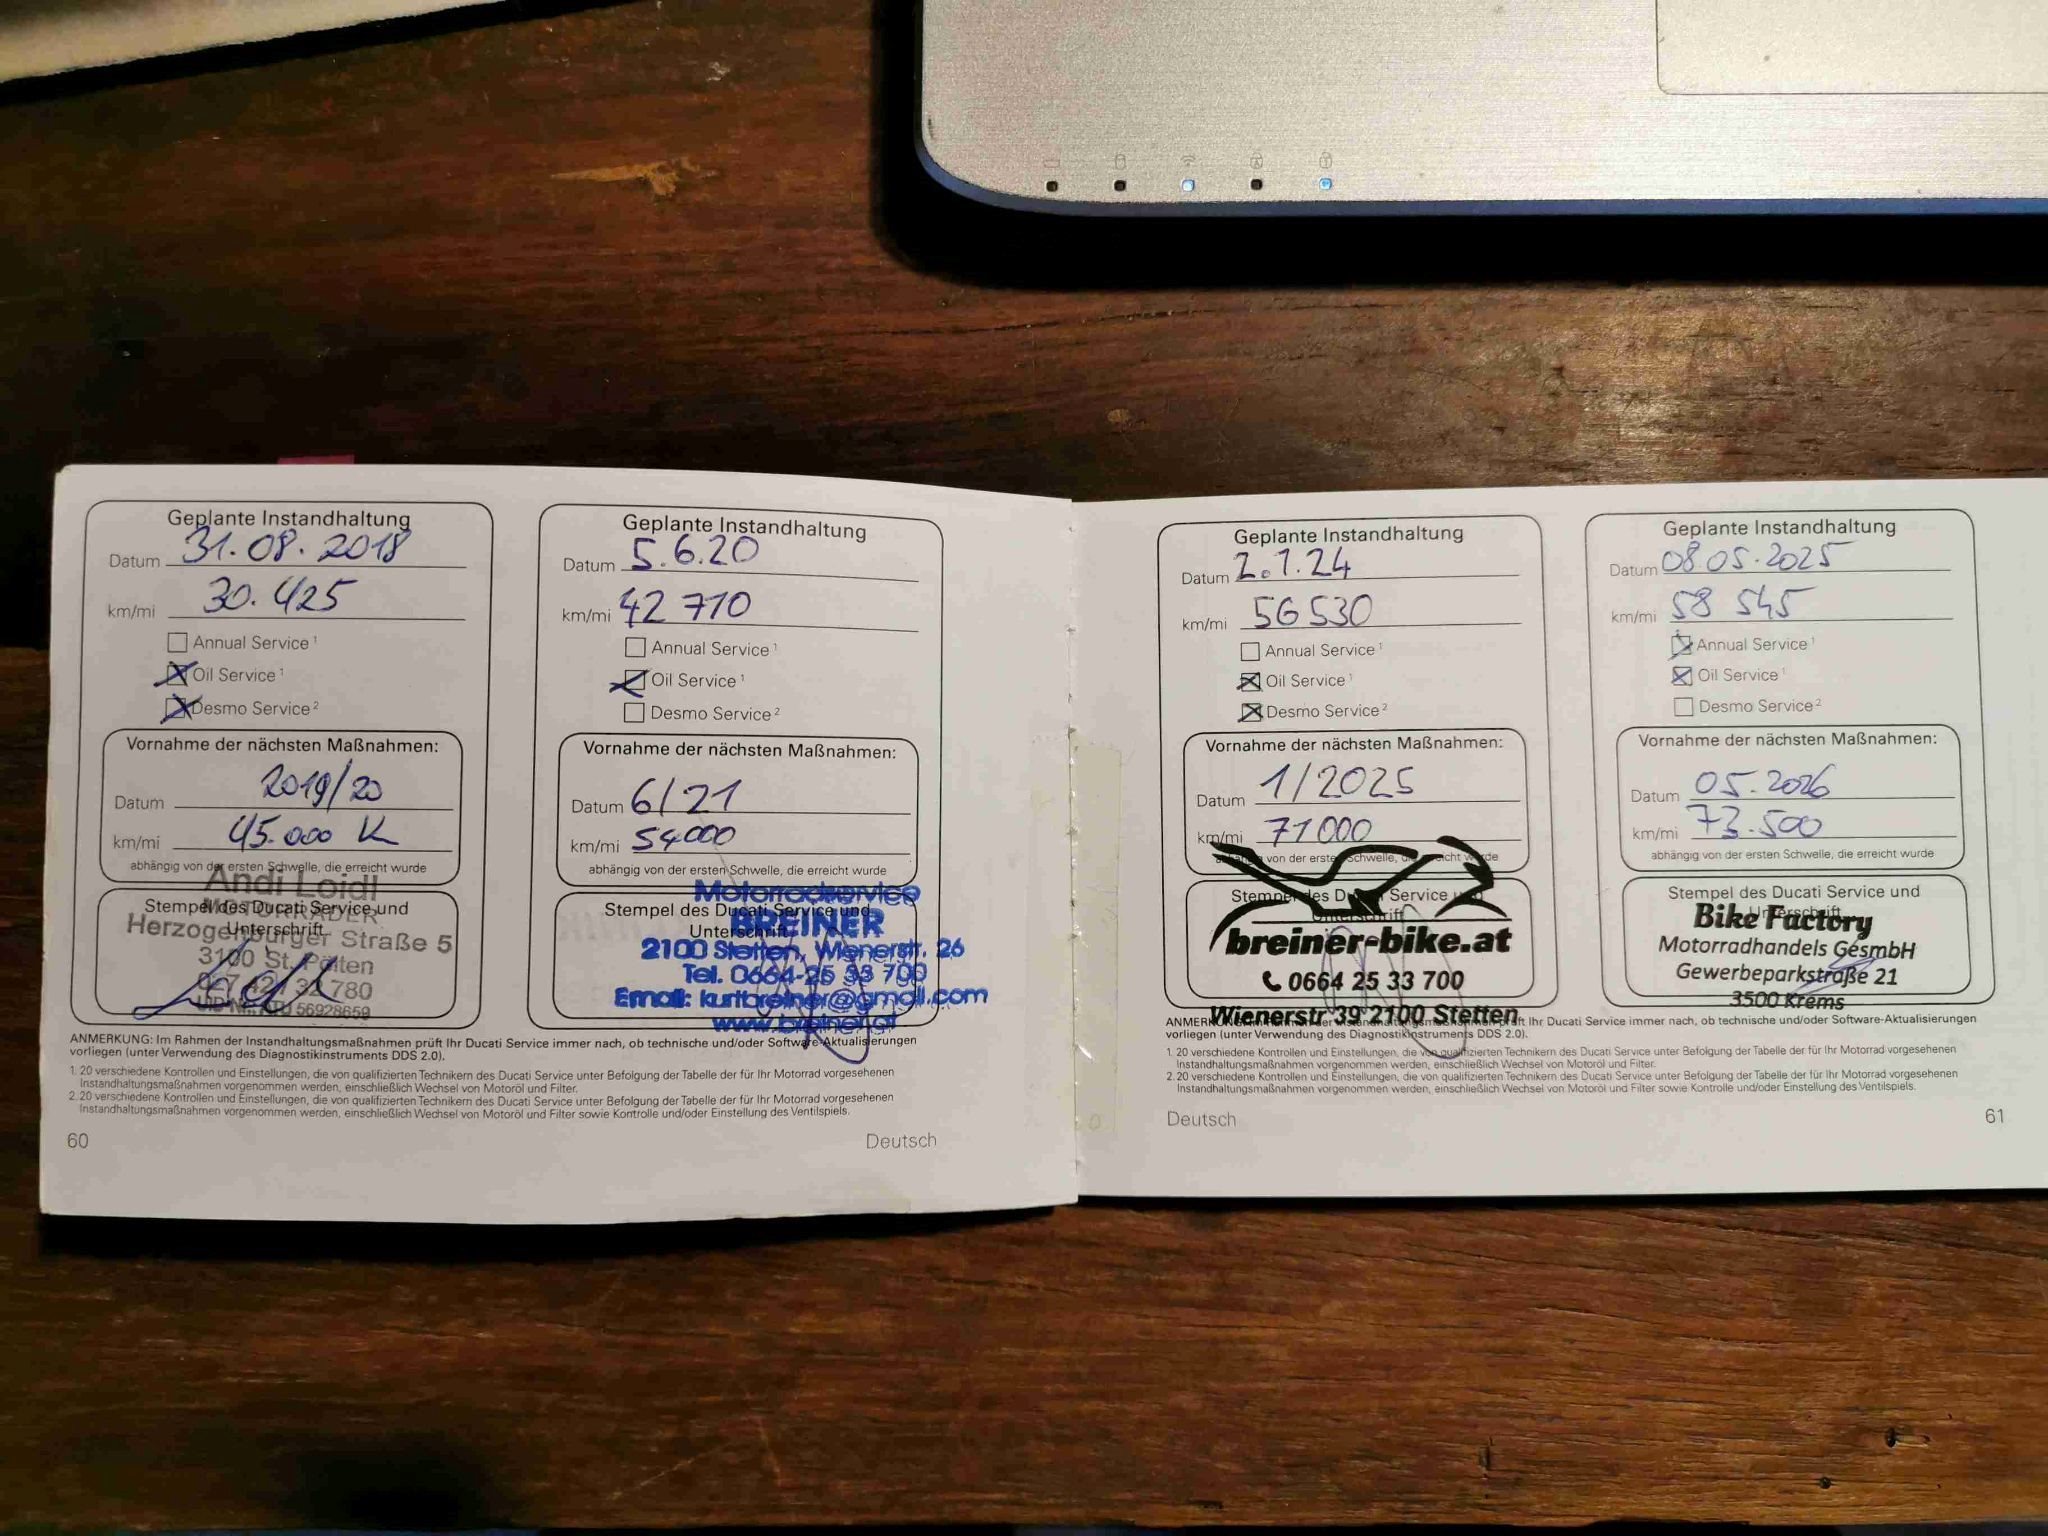 Geplante Instandhaltung
Datum 31.08.2018
km/mi 30.425
Annual Service ¹
Oil Service ¹
Desmo Service ²
Vornahme der nächsten Maßnahmen:
Datum 2019/20
km/mi 45.000 K
abhängig von der ersten Schwelle, die erreicht wurde
Andi Loidl
MOTORRÄDER
Stempel des Ducati Service und
Unterschrift
Herzogenburger Straße 5
3100 St. Pölten
56928659
Geplante Instandhaltung
Datum 5.6.20
km/mi 42 710
Annual Service ¹
Oil Service ¹
Desmo Service ²
Vornahme der nächsten Maßnahmen:
Datum 6/21
km/mi 54000
abhängig von der ersten Schwelle, die erreicht wurde
Motorradservice
Stempel des Ducati Service und
BREINER
Unterschrift
2100 Stetten, Wienerstr. 26
Tel. 0664-25 33 700
Email: kurtbreiner@gmail.com
www.breiner.at
ANMERKUNG: Im Rahmen der Instandhaltungsmaßnahmen prüft Ihr Ducati Service immer nach, ob technische und/oder Software-Aktualisierungen
vorliegen (unter Verwendung des Diagnostikinstruments DDS 2.0).
1. 20 verschiedene Kontrollen und Einstellungen, die von qualifizierten Technikern des Ducati Service unter Befolgung der Tabelle der für Ihr Motorrad vorgesehenen
Instandhaltungsmaßnahmen vorgenommen werden, einschließlich Wechsel von Motoröl und Filter.
2. 20 verschiedene Kontrollen und Einstellungen, die von qualifizierten Technikern des Ducati Service unter Befolgung der Tabelle der für Ihr Motorrad vorgesehenen
Instandhaltungsmaßnahmen vorgenommen werden, einschließlich Wechsel von Motoröl und Filter sowie Kontrolle und/oder Einstellung des Ventilspiels.
60
Deutsch
Geplante Instandhaltung
Datum 2.1.24
km/mi 56530
Annual Service ¹
Oil Service ¹
Desmo Service ²
Vornahme der nächsten Maßnahmen:
Datum 1/2025
km/mi 71000
abhängig von der ersten Schwelle, die erreicht wurde
Stempel des Ducati Service und
Unterschrift
breiner-bike.at
0664 25 33 700
Wienerstr 39 2100 Stetten
Geplante Instandhaltung
Datum 08.05.2025
km/mi 58 545
Annual Service ¹
Oil Service ¹
Desmo Service ²
Vornahme der nächsten Maßnahmen:
Datum 05.2026
km/mi 73.500
abhängig von der ersten Schwelle, die erreicht wurde
Stempel des Ducati Service und
Unterschrift
Bike Factory
Motorradhandels GesmbH
Gewerbeparkstraße 21
3500 Krems
ANMERKUNG: Im Rahmen der Instandhaltungsmaßnahmen prüft Ihr Ducati Service immer nach, ob technische und/oder Software-Aktualisierungen
vorliegen (unter Verwendung des Diagnostikinstruments DDS 2.0).
1. 20 verschiedene Kontrollen und Einstellungen, die von qualifizierten Technikern des Ducati Service unter Befolgung der Tabelle der für Ihr Motorrad vorgesehenen
Instandhaltungsmaßnahmen vorgenommen werden, einschließlich Wechsel von Motoröl und Filter.
2. 20 verschiedene Kontrollen und Einstellungen, die von qualifizierten Technikern des Ducati Service unter Befolgung der Tabelle der für Ihr Motorrad vorgesehenen
Instandhaltungsmaßnahmen vorgenommen werden, einschließlich Wechsel von Motoröl und Filter sowie Kontrolle und/oder Einstellung des Ventilspiels.
Deutsch
61